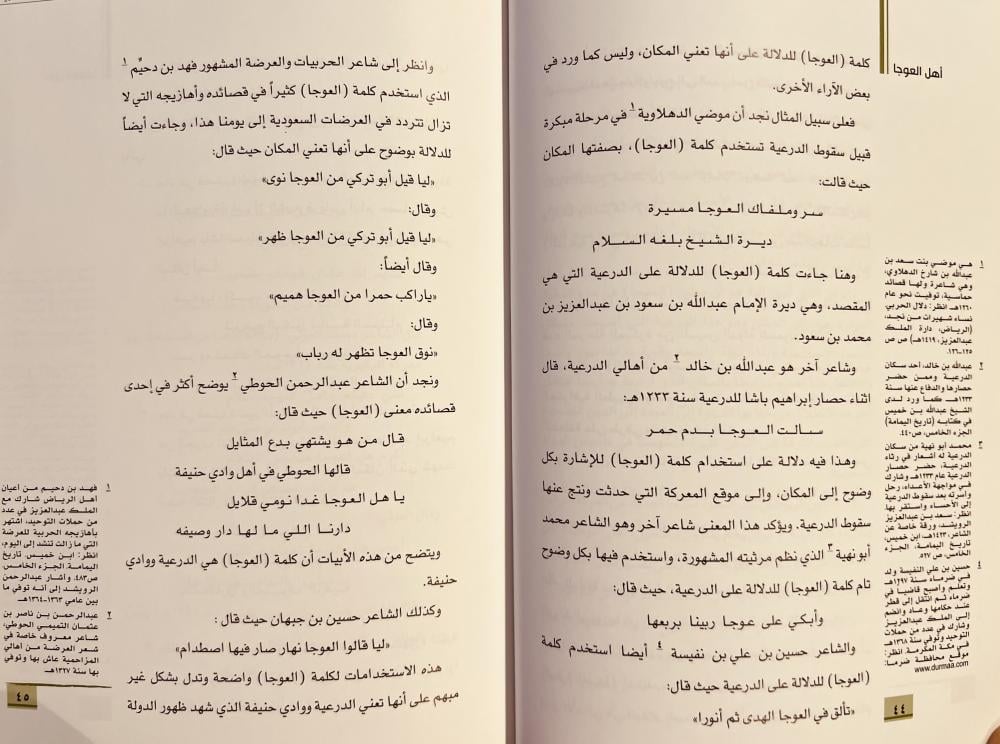 أهل العوجا
كلمة (العوجا) للدلالة على أنها تعني المكان، وليس كما ورد في
بعض الآراء الأخرى.
فعلى سبيل المثال نجد أن موضي الدهلاوية ١ في مرحلة مبكرة
قبيل سقوط الدرعية تستخدم كلمة (العوجا)، بصفتها المكان
حيث قالت:
سر وملفاك العوجا مسيرة
ديرة الشيخ بلغه السلام
وهنا جاءت كلمة (العوجا) للدلالة على الدرعية التي هي
المقصد، وهي ديرة الإمام عبدالله بن سعود بن عبدالعزيز بن
محمد بن سعود.
وشاعر آخر هو عبدالله بن خالد ٢ من أهالي الدرعية، قال
اثناء حصار إبراهيم باشا للدرعية سنة ١٢٣٣هـ:
سالت العوجا بدم حمر
وهذا فيه دلالة على استخدام كلمة (العوجا) للإشارة بكل
وضوح إلى المكان، وإلى موقع المعركة التي حدثت ونتج عنها
سقوط الدرعية. ويؤكد هذا المعنى شاعر آخر وهو الشاعر محمد
أبو نهية ٣ الذي نظم مرثيته المشهورة، واستخدم فيها بكل وضوح
تام كلمة (العوجا) للدلالة على الدرعية، حيث قال:
وأبكي على عوجا ربينا بربعها
والشاعر حسين بن علي بن نفيسة ٤ أيضا استخدم كلمة
(العوجا) للدلالة على الدرعية حيث قال:
«تألق في العوجا الهدى ثم أنورا»
١ هي موضي بنت سعد بن
عبدالله بن شارخ الدهلاوي،
وهي شاعرة ولها قصائد
حماسية، توفيت نحو عام
١٢٦٠هـ. انظر: دلال الحربي.
نساء شهيرات من نجد،
(الرياض، دارة الملك
عبدالعزيز، ١٤١٩هـ) ص ص
١٢٥-١٢٦.
٢ عبدالله بن خالد، أحد سكان
الدرعية وممن حضر
حصارها والدفاع عنها سنة
١٢٣٣هـ. كما ورد لدى
الشيخ عبدالله بن خميس
في كتابه (تاريخ اليمامة)
الجزء الخامس، ص٤٤٠.
٣ محمد أبو نهية من سكان
الدرعية له أشعار في رثاء
الدرعية، حضر حصار
الدرعية عام ١٢٣٣هـ وشارك
في مواجهة الأعداء، رحل
وأسرته بعد سقوط الدرعية
إلى الأحساء واستقر بها.
انظر: سعد بن عبدالعزيز
الرويشد، ورقة خاصة عن
الشاعر، ١٤٢٣هـ، ابن خميس،
تاريخ اليمامة، الجزء
الخامس، ص ٥٢٧.
٤ حسين بن علي النفيسة ولد
في ضرماء سنة ١٢٩٧هـ
وتعلم وأصبح قاضيا في
ضرماء ثم انتقل إلى قطر
عند حكامها وعاد وانضم
إلى الملك عبدالعزيز
وشارك في عدد من حملات
التوحيد وتوفي سنة ١٣٦٨هـ
في مكة المكرمة. انظر:
موقع محافظة ضرما:
www.durmaa.com
٤٤
وانظر إلى شاعر الحربيات والعرضة المشهور فهد بن دحيِّم ١
الذي استخدم كلمة (العوجا) كثيراً في قصائده وأهازيجه التي لا
تزال تتردد في العرضات السعودية إلى يومنا هذا، وجاءت أيضاً
للدلالة بوضوح على أنها تعني المكان حيث قال:
«ليا قيل أبو تركي من العوجا نوى»
وقال:
«ليا قيل أبو تركي من العوجا ظهر»
وقال أيضاً:
«ياراكب حمرا من العوجا هميم»
وقال:
«نوق العوجا تظهر له رباب»
ونجد أن الشاعر عبدالرحمن الحوطي ٢ يوضح أكثر في إحدى
قصائده معنى (العوجا) حيث قال:
قال من هو يشتهي بدع المثايل
قالها الحوطي في أهل وادي حنيفة
يا هل العوجا غدا نومي قلايل
دارنا اللي ما لها دار وصيفه
ويتضح من هذه الأبيات أن كلمة (العوجا) هي الدرعية ووادي
حنيفة.
وكذلك الشاعر حسين بن جبهان حيث قال :
«ليا قالوا العوجا نهار صار فيها اصطدام»
هذه الاستخدامات لكلمة (العوجا) واضحة وتدل بشكل غير
مبهم على أنها تعني الدرعية ووادي حنيفة الذي شهد ظهور الدولة
١ فهد بن دحيم من أعيان
أهل الرياض شارك مع
الملك عبدالعزيز في عدد
من حملات التوحيد، اشتهر
بأهازيجه الحربية للعرضة
التي ما زالت تنشد إلى اليوم،
انظر: ابن خميس. تاريخ
اليمامة. الجزء الخامس
ص٤٨٣. وأشار عبدالرحمن
الرويشد إلى أنه توفي ما
بين عامي ١٣٦٣-١٣٦٤هـ.
٢ عبدالرحمن بن ناصر بن
عثمان التميمي الحوطي،
شاعر معروف خاصة في
شعر العرضة من أهالي
المزاحمية عاش بها وتوفي
بها سنة ١٣٢٧هـ.
٤٥